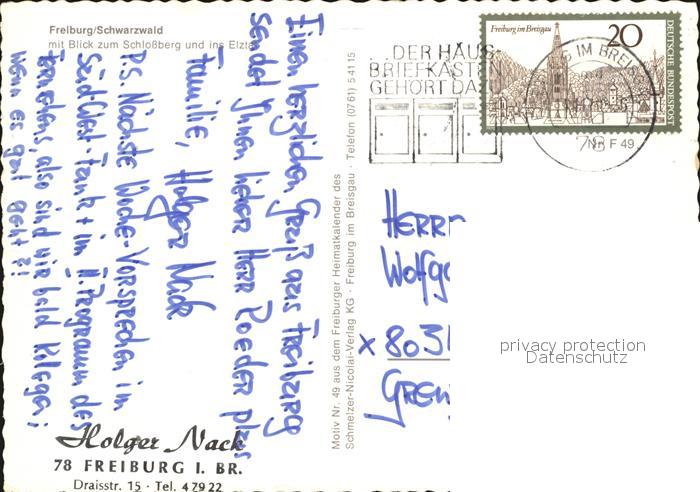 Freiburg/Schwarzwald
mit Blick zum Schloßberg und ins Elztal
Einen herzlichen Gruß aus Freiburg
sendet Ihnen lieber Herr Roeder plus
Familie, Holger Nack
P.S. Nächste Woche-Vorsprechen im
Südwest-Funk im II. Programm des
Fernsehens, also sind wir bald Kollegen;
wenn es gut geht?!
Holger Nack
78 FREIBURG I. BR.
Draisstr. 15 · Tel. 47922
Motiv Nr. 49 aus dem Freiburger Heimatkalender des
Schmelzer-Nicolai-Verlag KG · Freiburg im Breisgau · Telefon (0761) 54115
...DER HAUS-
BRIEFKASTEN
GEHÖRT DAZU
Freiburg im Breisgau
20
DEUTSCHE BUNDESPOST
G IM BREIS
78
Nr. F 49
HERRN
Wolfg
x 8031
Gren
privacy protection
Datenschutz